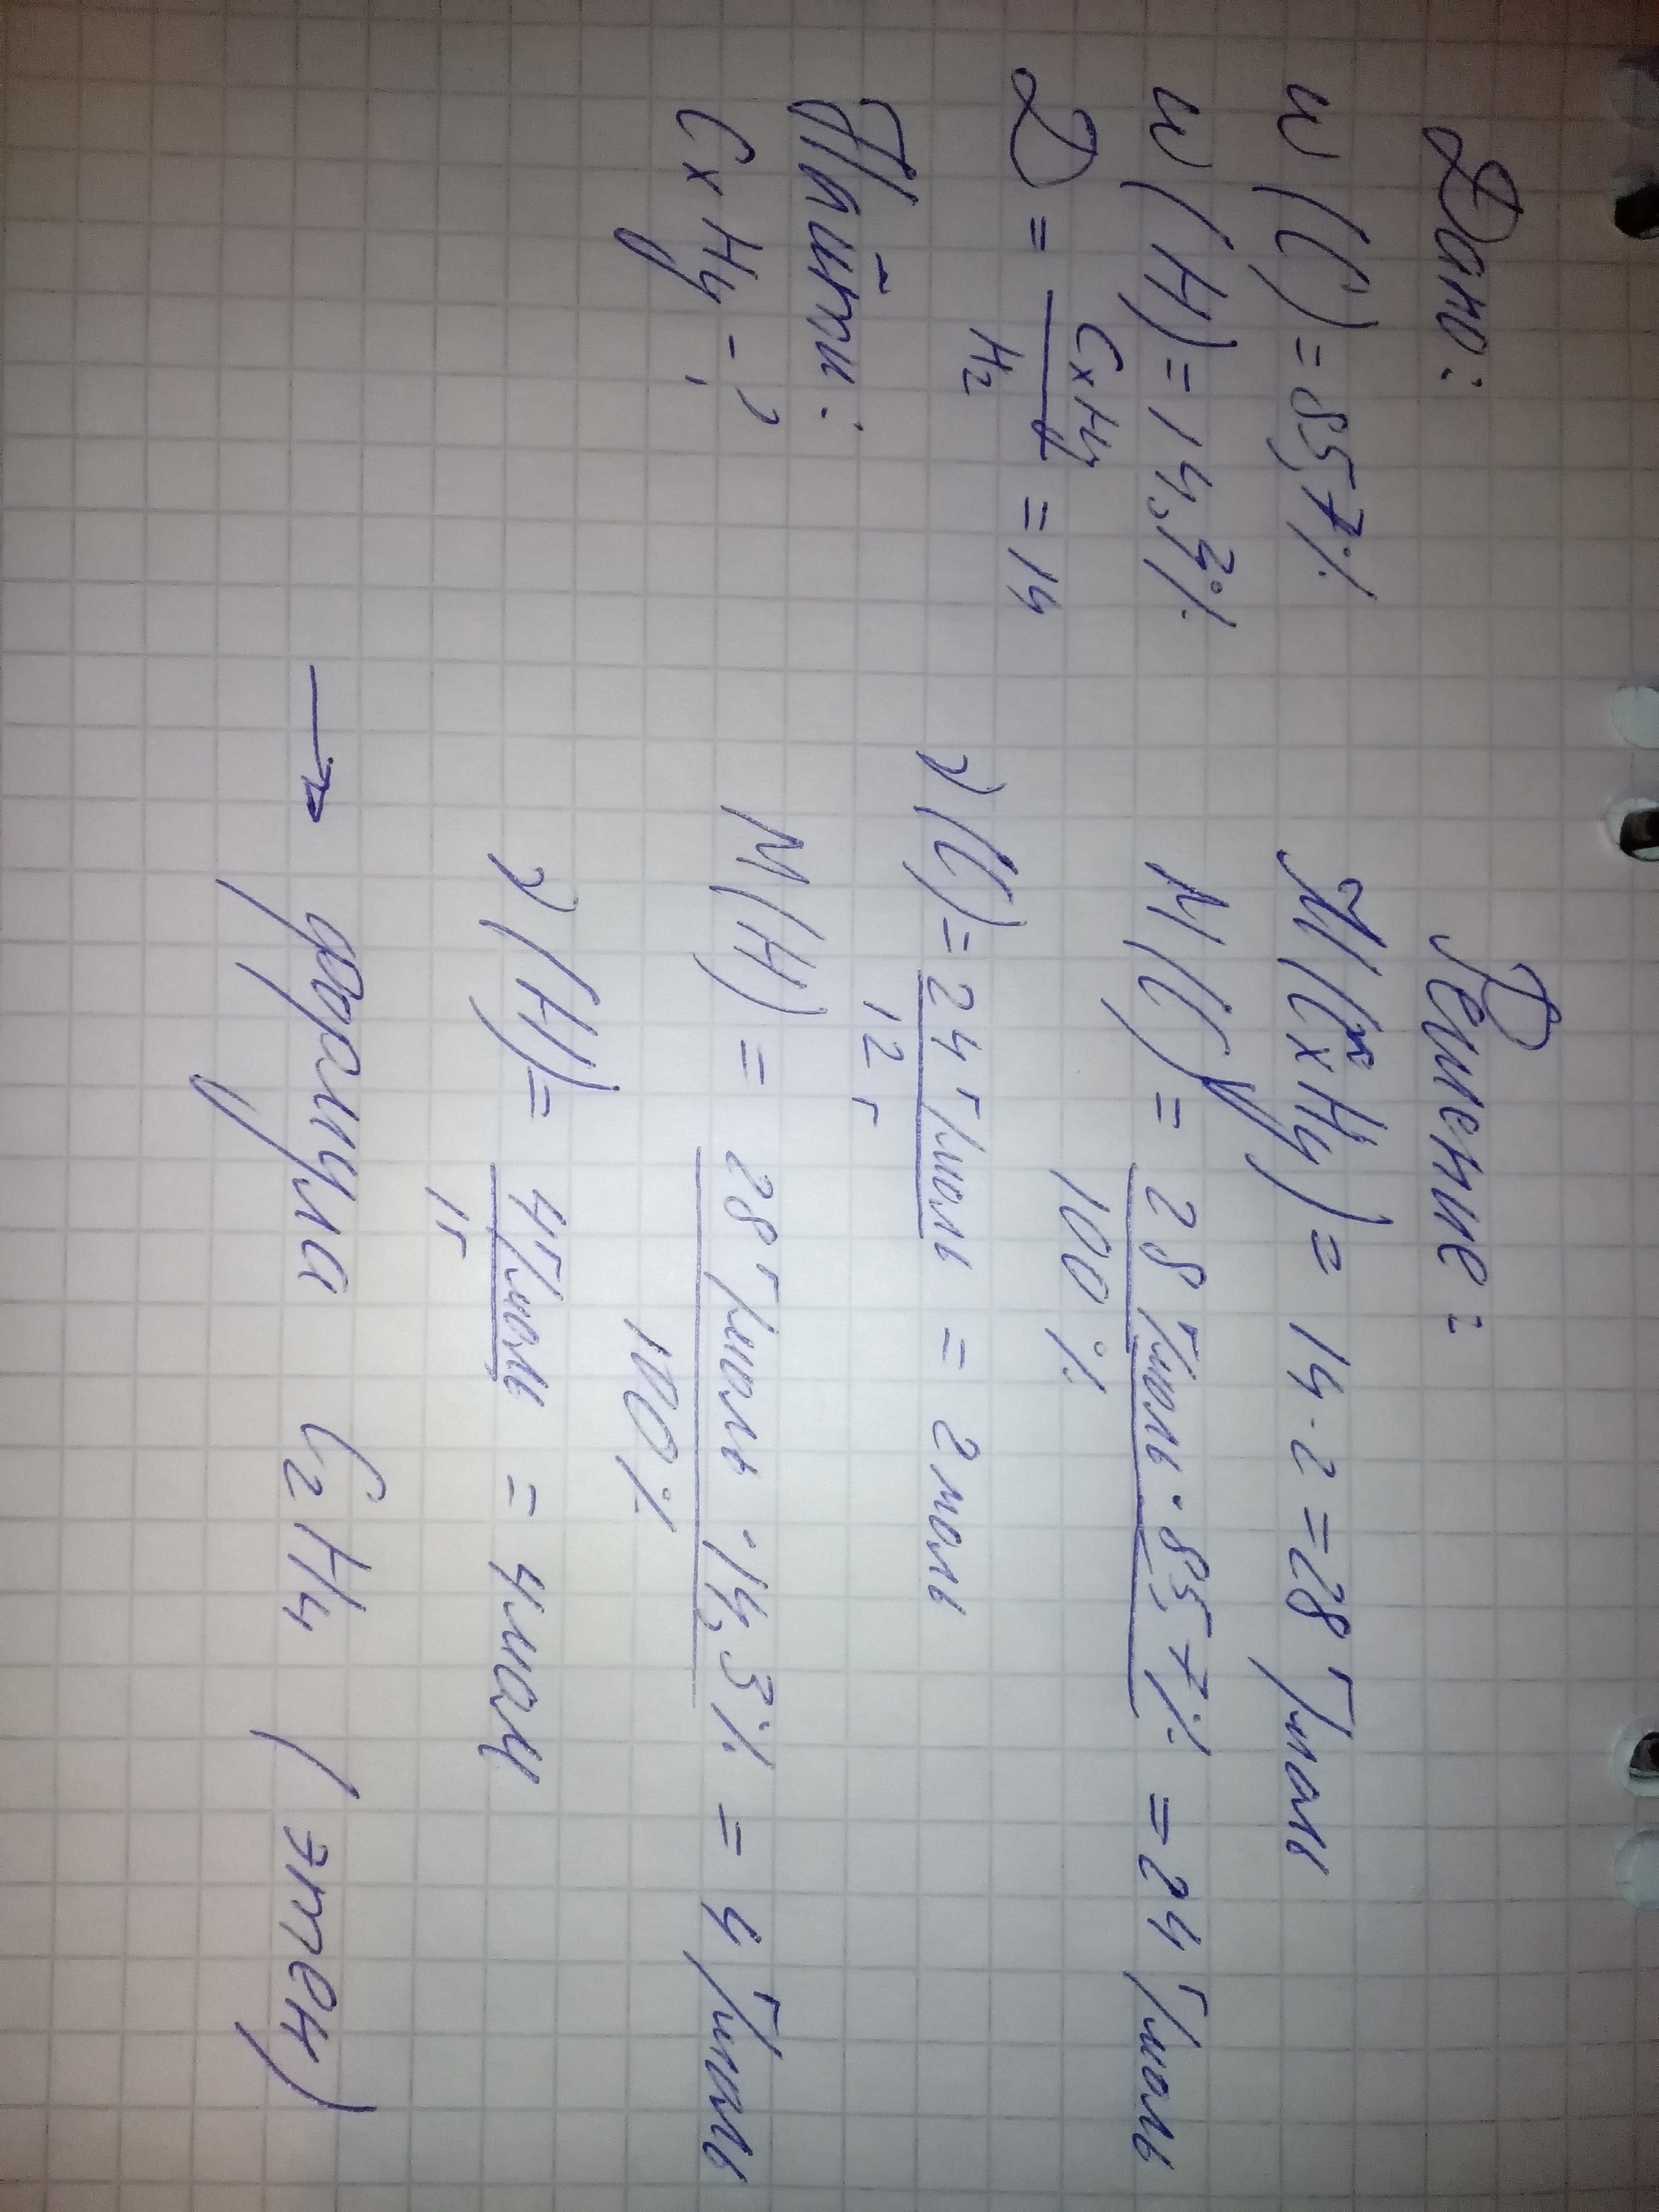 Дано:
w(C) = 85,7%
w(H) = 14,3%
D = CxHy / H2 = 14
Найти:
CxHy - ?
Решение:
M(CxHy) = 14 · 2 = 28 г/моль
M(C) = 28 г/моль · 85,7% / 100% = 24 г/моль
ν(C) = 24 г/моль / 12 г = 2 моль
M(H) = 28 г/моль · 14,3% / 100% = 4 г/моль
ν(H) = 4 г/моль / 1 г = 4 мол
→ формула C2H4 (этен)